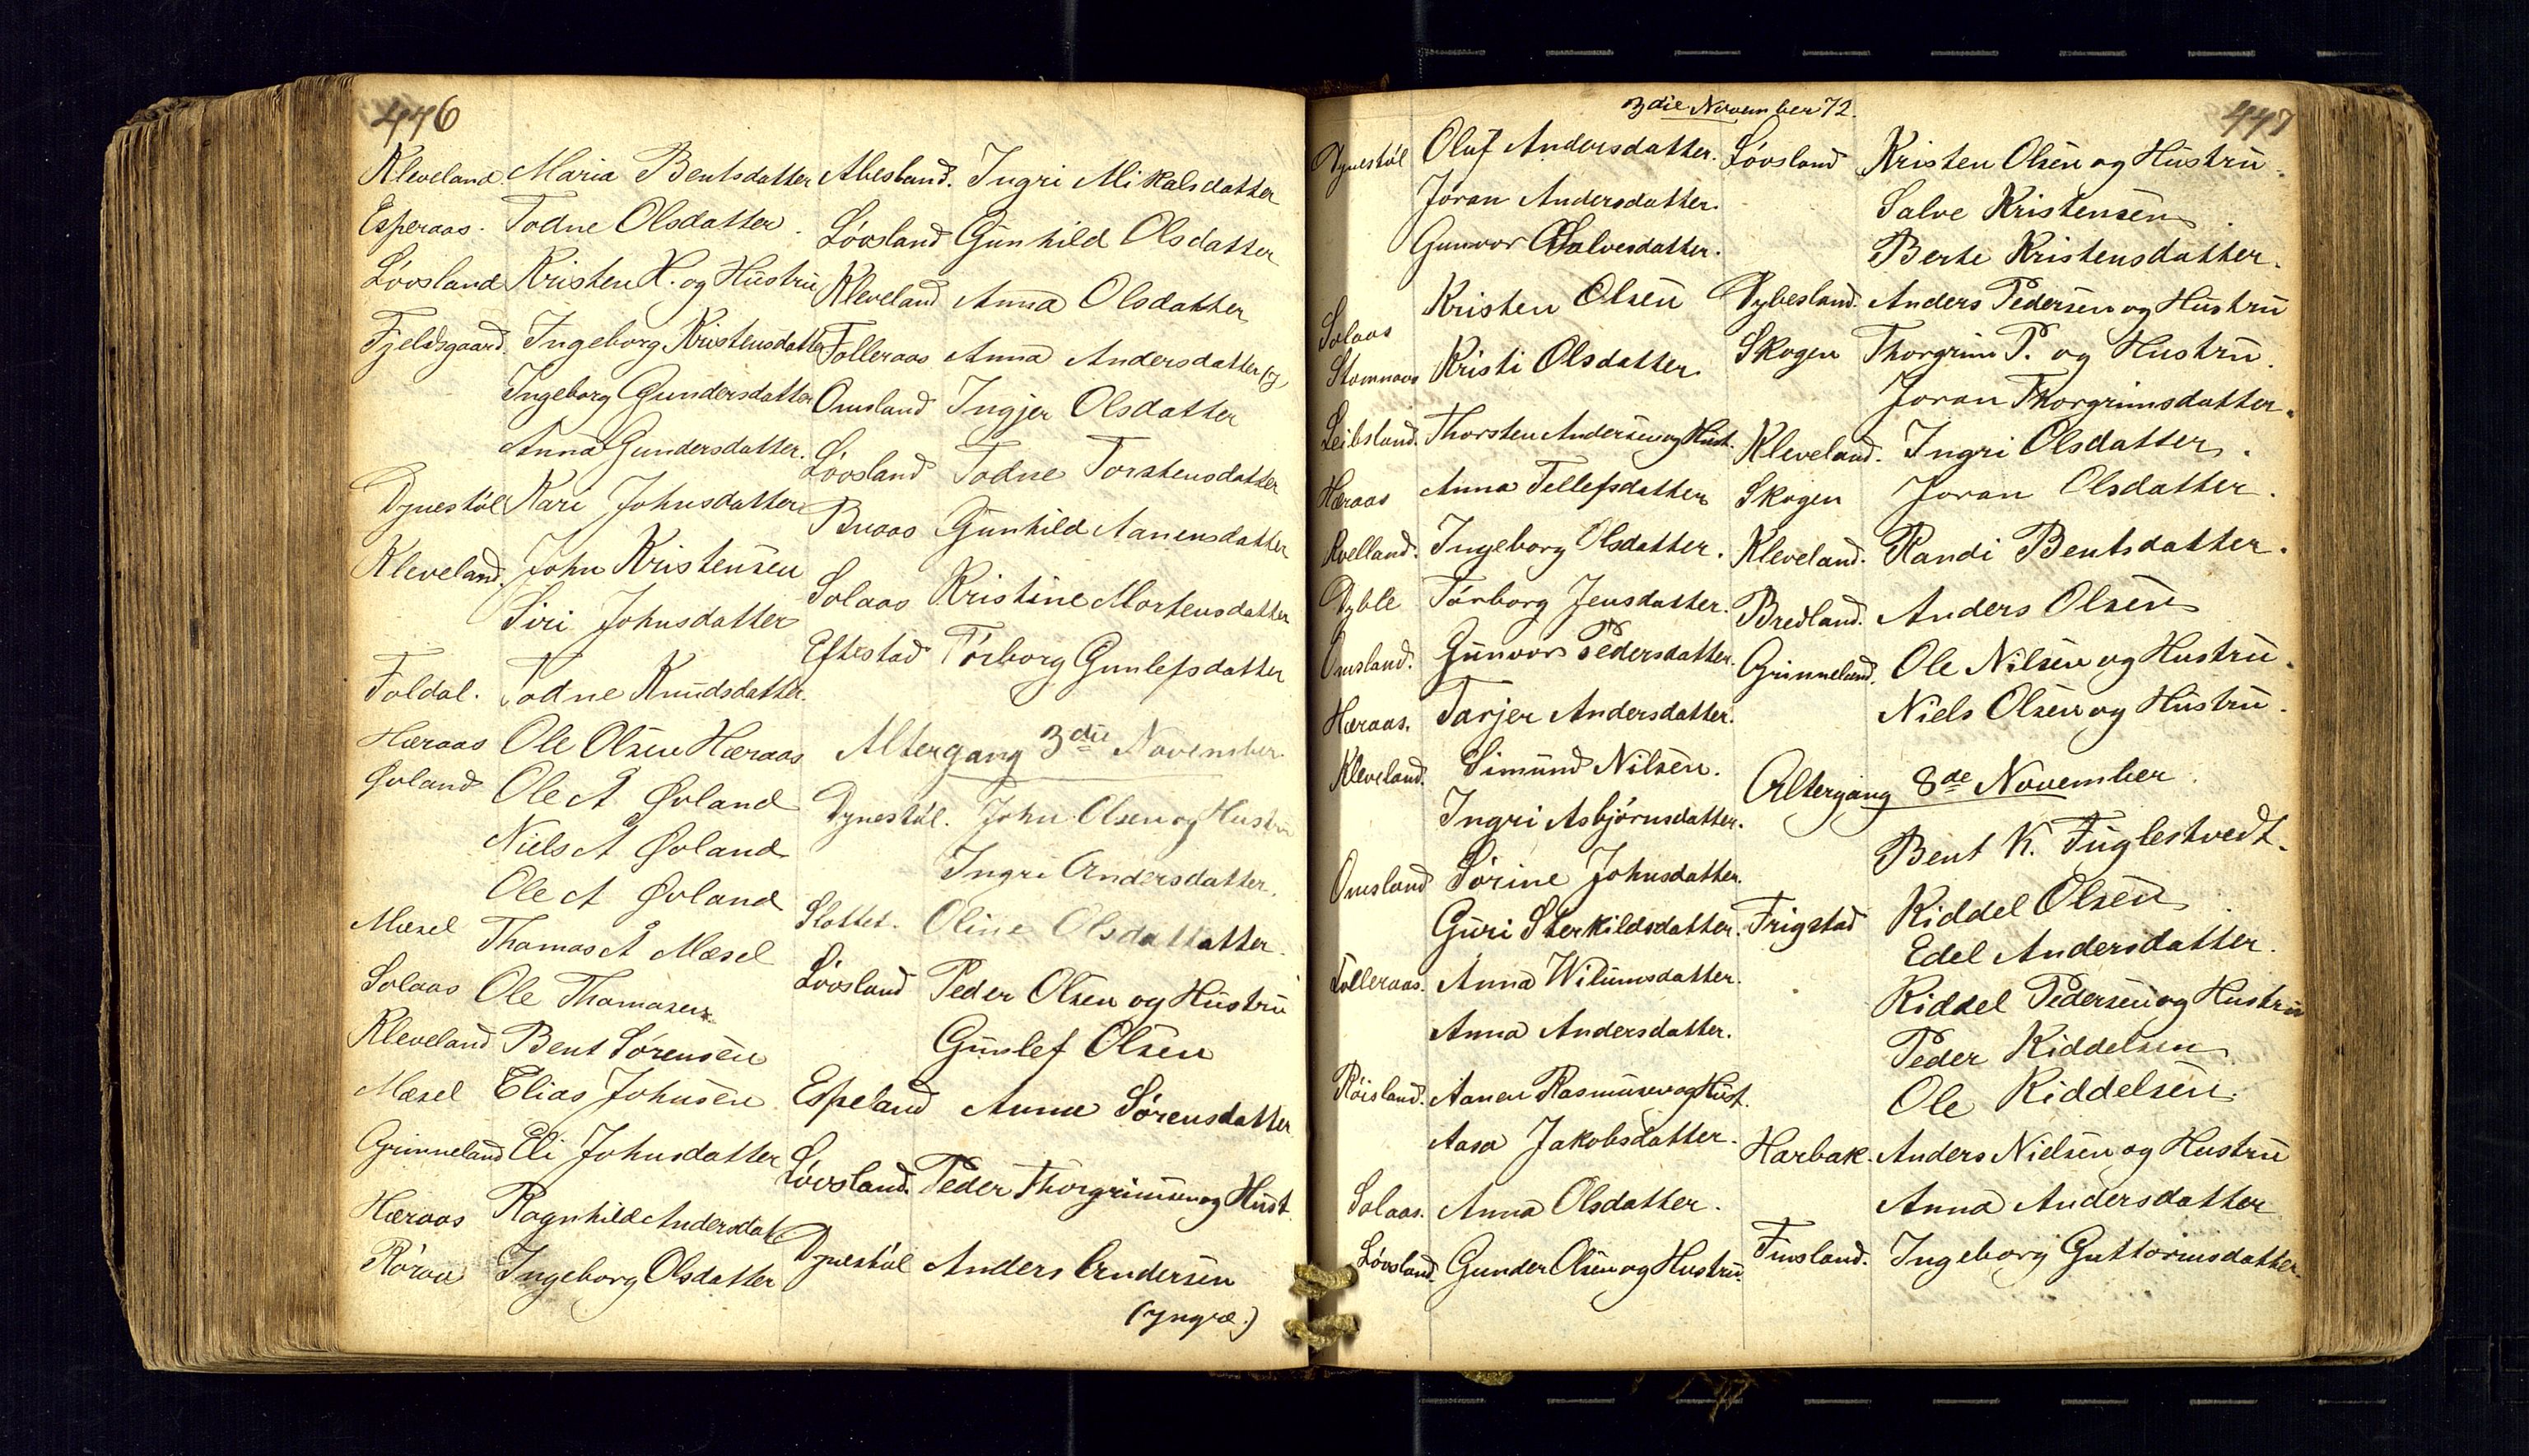 476
Kleveland. Maria Bentsdatter
Esperaas. Todne Olsdatter.
Lövsland Kristen K. og Hustru
Fjeldsgaard. Ingeborg Kristensdatter
Ingeborg Gundersdatter
Anna Gundersdatter.
Dynestöl Kari Johnsdatter
Kleveland. John Kristensen
Siri Johnsdatter
Foldal. Todne Knudsdatter.
Hæraas Ole Olsen Hæraas
Øvland Ole A Øvland
Niels A Øvland
Ole A Øvland
Mæsel Thomas A Mæsel
Solaas Ole Thomasen
Kleveland Bent Sörensen
Mæsel Elias Johnsen
Grinneland Eli Johnsdatter
Hæraas Ragnhild Andersdat
Röraa Ingeborg Olsdatter
Abesland. Ingri Mikalsdatter
Lövsland Gunhild Olsdatter
Kleveland Anna Olsdatter
Tolleraas Anna Andersdatter (y
Omsland Ingjer Olsdatter
Lövsland Todne Torstensdatter
Buaas Gunhild Aanensdatter
Solaas Kristine Mortensdatter
Eftestad Törborg Gunlefsdatter
Altergang 3die November.
Dynestöl. John Olsen og Hustru
Ingri Andersdatter.
Slottet. Oline Olsdattatter
Lövsland Peder Olsen og Hustru
Gunlef Olsen
Espeland Anne Sörensdatter
Lövsland. Peder Thorgrimsen og Hust.
Dynestöl Anders Andersen
(yngre.)
3die November 72.
447
Dynestöl Oluf Andersdatter.
Joran Andersdatter.
Gunvor Salvesdatter.
Solaas Kristen Olsen
Stomnaas Kristi Olsdatter
Leibsland. Thorsten Andersen og Hust.
Hæraas Anna Tellefsdatter
Kvelland. Ingeborg Olsdatter.
Dyble Törborg Jensdatter.
Omsland. Gunvor Pedersdatter.
Hæraas. Tarjer Andersdatter.
Kleveland. Simund Nilsen.
Ingri Asbjörnsdatter.
Omsland Sörine Johnsdatter.
Guri Sterkildsdatter.
Tolleraas. Anna Wilumsdatter.
Anna Andersdatter.
Röisland. Aanen Rasmusen og Hust.
Aasa Jakobsdatter.
Solaas. Anna Olsdatter.
Lövsland. Gunder Olsen og Hustru.
Lövsland Kristen Olsen og Hustru.
Salve Kristensen
Berte Kristensdatter.
Dybesland. Anders Pedersen og Hustru
Skogen Thorgrim P. og Hustru.
Joran Thorgrimsdatter.
Kleveland. Ingri Olsdatter.
Skogen Joran Olsdatter.
Kleveland. Randi Bentsdatter.
Bredland. Anders Olsen
Grinneland. Ole Nilsen og Hustru.
Niels Olsen og Hustru.
Altergang 8de November.
Bent K. Fuglestvedt.
Frigstad Kiddel Olsen
Edel Andersdatter.
Kiddel Pedersen og Hustru
Peder Kiddelsen
Ole Kiddelsen.
Harbak. Anders Nielsen og Hustru
Anna Andersdatter
Finsland. Ingeborg Guttormsdatter.